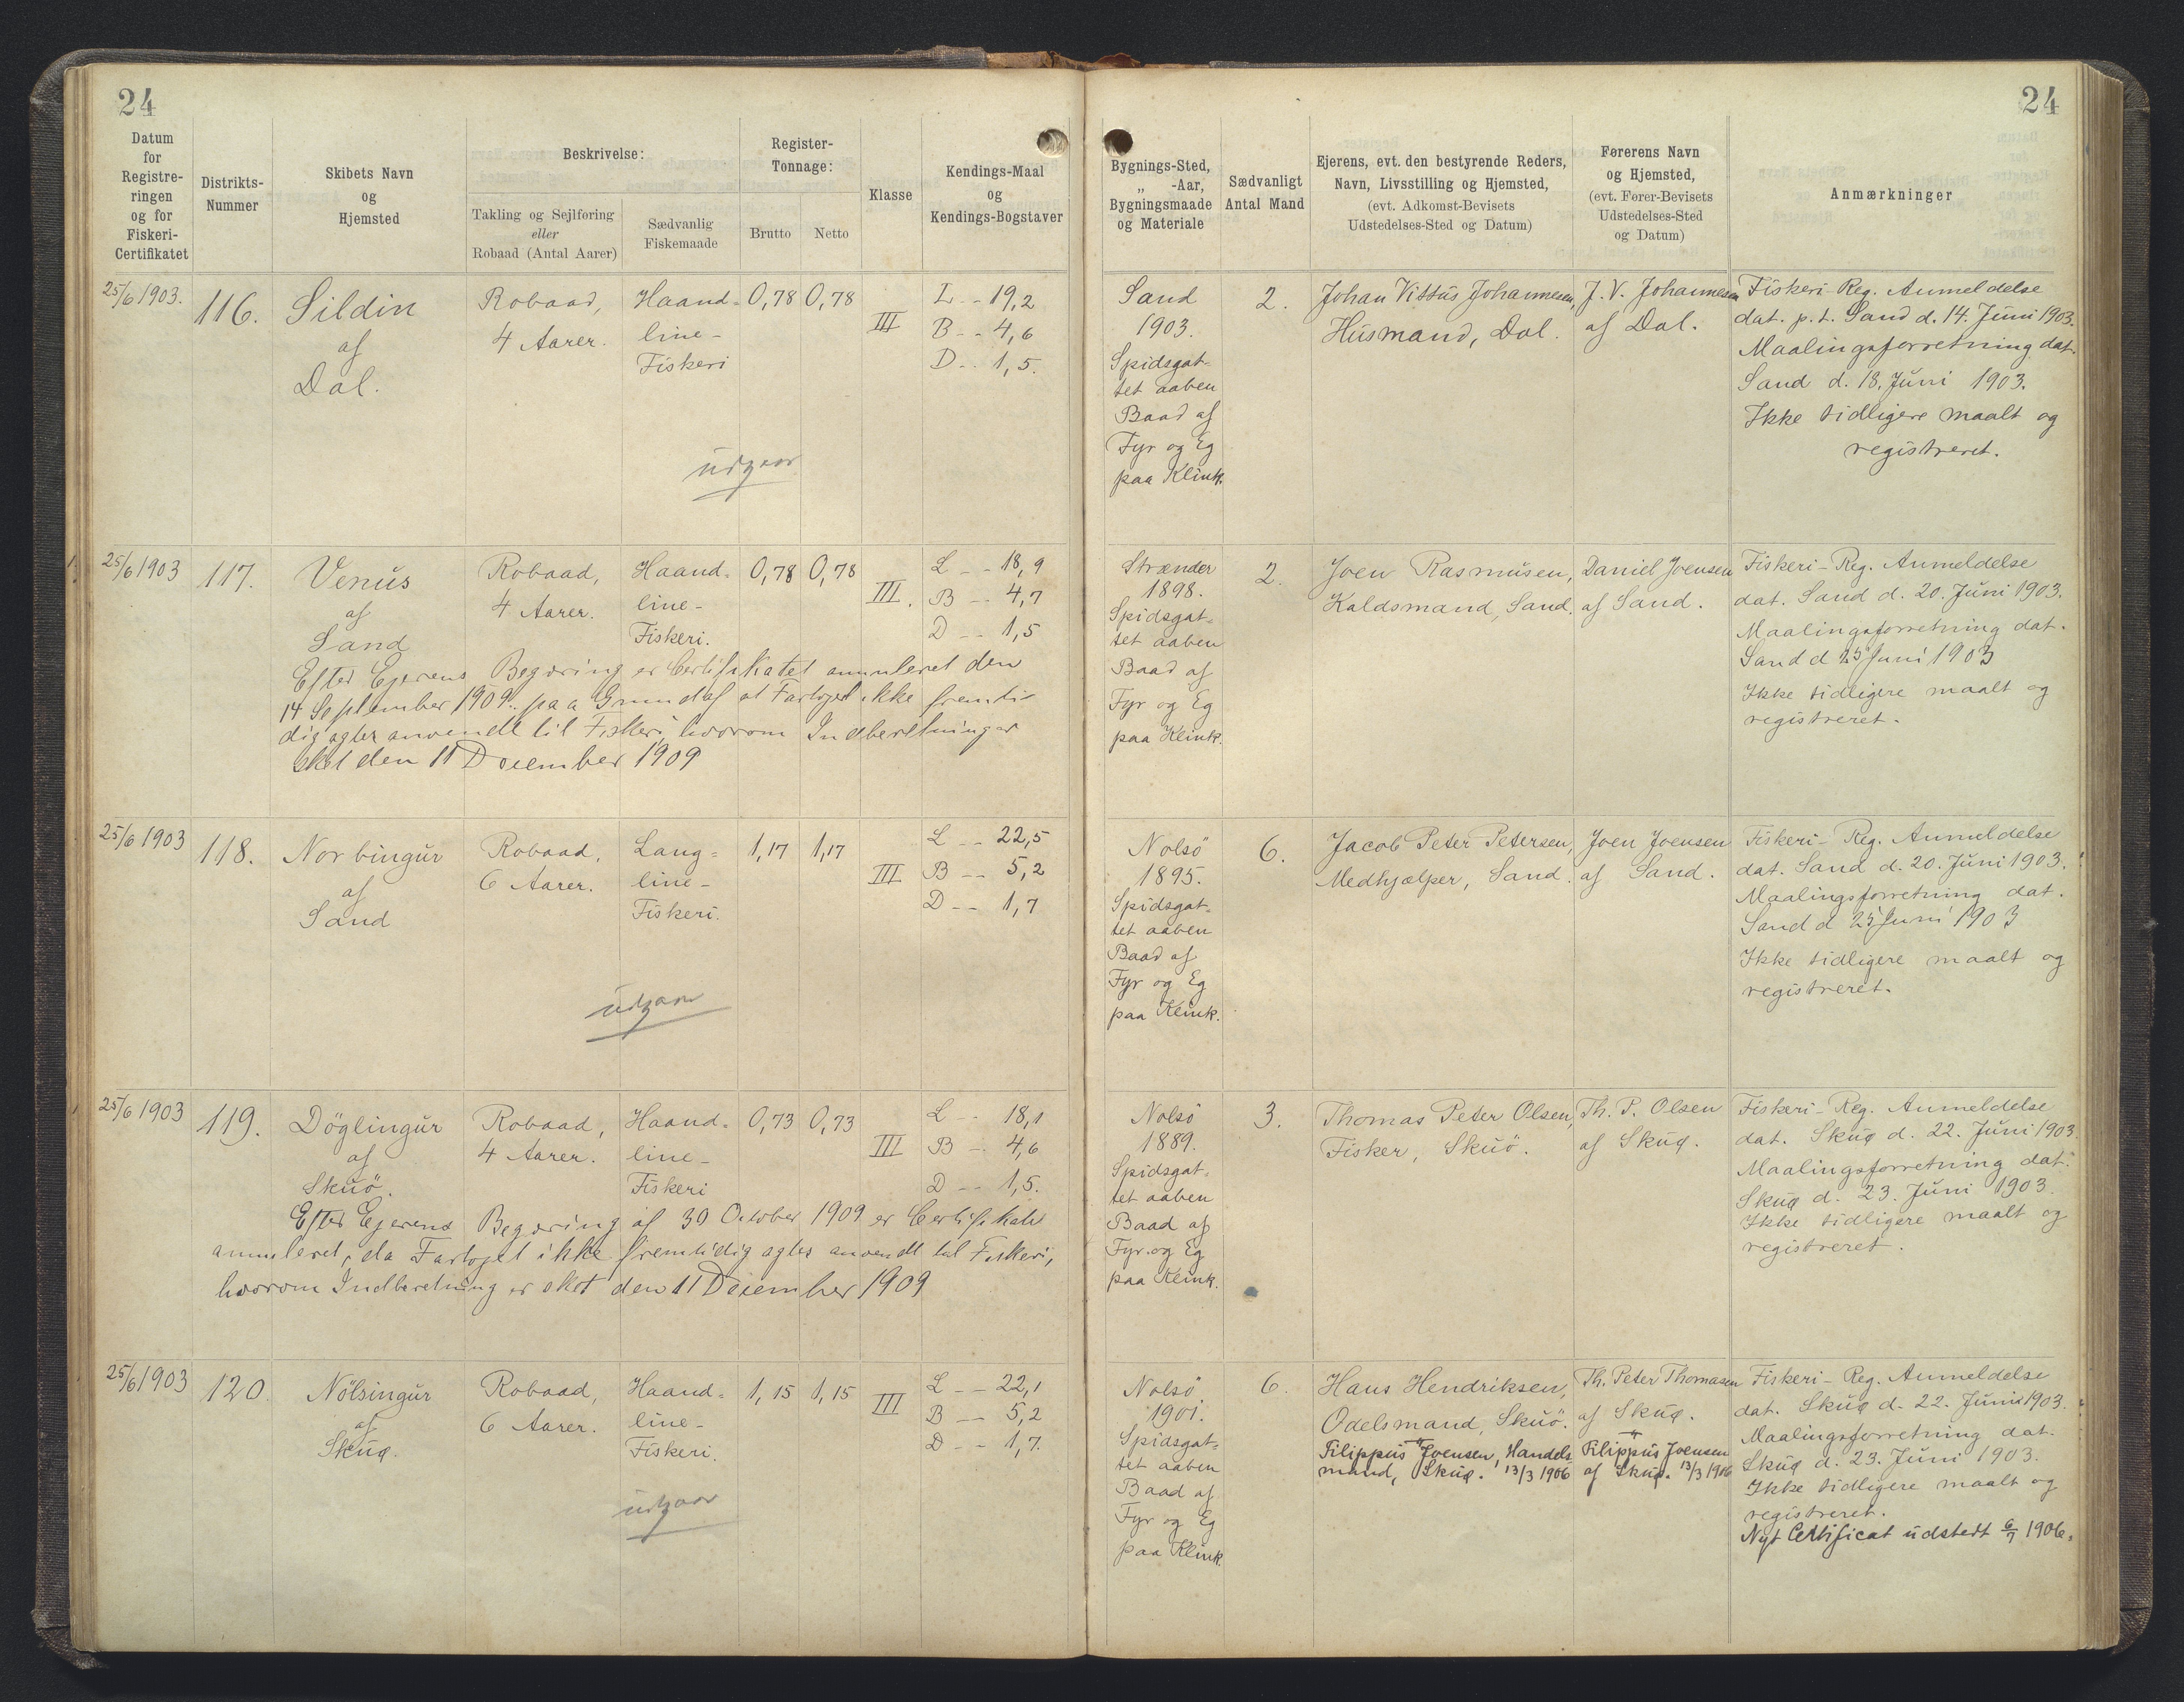 24
24
Datum
for
Registre-
ringen
og for
Fiskeri-
Certifikatet
Distrikts-
Nummer
Skibets Navn
og
Hjemsted
Beskrivelse:
Takling og Sejlføring
eller
Robaad (Antal Aarer)
Sædvanlig
Fiskemaade
Register-
Tonnage:
Brutto
Netto
Klasse
Kendings-Maal
og
Kendings-Bogstaver
Bygnings-Sted,
„ -Aar,
Bygningsmaade
og Materiale
Sædvanligt
Antal Mand
Ejerens, evt. den bestyrende Reders,
Navn, Livsstilling og Hjemsted,
(evt. Adkomst-Bevisets
Udstedelses-Sted og Datum)
Førerens Navn
og Hjemsted,
(evt. Fører-Bevisets
Udstedelses-Sted
og Datum)
Anmærkninger
25/6 1903.
116.
Sildin
af
Dal.
Robaad,
4 Aarer.
Haand-
line-
Fiskeri
0,78
0,78
III
L - - 19,2
B - - 4,6
D - - 1,5.
Sand
1903.
Spidsgat-
tet aaben
Baad af
Fyr og Eg
paa Klink.
2.
Johan Vittus Johannesen,
Husmand, Dal.
J. V. Johannesen
af Dal.
Fiskeri-Reg. Anmeldelse
dat. p.t. Sand d. 14. Juni 1903.
Maalingsforretning dat.
Sand d. 18. Juni 1903.
Ikke tidligere maalt og
registreret.
udgaar
25/6 1903
117.
Venus
af
Sand
Robaad,
4 Aarer.
Haand-
line-
Fiskeri.
0,78
0,78
III.
L - - 18,9
B - - 4,7
D - - 1,5
Efter Ejerens Begæring er Certifikatet annuleret den
14 September 1909. paa Grund af at Fartøjet ikke fremti
dig agtes anvendt til Fiskeri, hvorom Indberetninger
sket den 11 December 1909
Strænder
1898.
Spidsgat-
tet aaben
Baad af
Fyr og Eg
paa Klink.
2.
Joen Rasmusen,
Kaldsmand, Sand.
Daniel Joensen
af Sand.
Fiskeri-Reg. Anmeldelse
dat. Sand d. 20. Juni 1903.
Maalingsforretning dat.
Sand d 25 Juni 1903
Ikke tidligere maalt og
registreret.
25/6 1903
118.
Norbingur
af
Sand
Robaad,
6 Aarer.
Lang-
line-
Fiskeri.
1,17
1,17
III
L - - 22,5
B - - 5,2
D - - 1,7
Nolsö
1895.
Spidsgat-
tet aaben
Baad af
Fyr og Eg
paa Klink.
6.
Jacob Peter Petersen,
Medhjælper, Sand.
Joen Joensen
af Sand.
Fiskeri-Reg. Anmeldelse
dat. Sand d. 20. Juni 1903.
Maalingsforretning dat.
Sand d 25 Juni 1903
Ikke tidligere maalt og
registreret.
udgaar
25/6 1903
119.
Döglingur
af
Skuö.
Robaad,
4 Aarer.
Haand-
line-
Fiskeri
0,73
0,73
III
L - - 18,1
B - - 4,6
D - - 1,5.
Efter Ejerens Begæring af 30 October 1909 er Certifikatet
annuleret, da Fartøjet ikke fremtidig agtes anvendt til Fiskeri,
hvorom Indberetning er sket den 11 December 1909
Nolsö
1889.
Spidsgat-
tet aaben
Baad af
Fyr og Eg
paa Klink.
3.
Thomas Peter Olsen,
Fisker, Skuö.
Th. P. Olsen
af Skuø.
Fiskeri-Reg. Anmeldelse
dat. Skuø d. 22. Juni 1903
Maalingsforretning dat.
Skuø d. 23. Juni 1903.
Ikke tidligere maalt og
registreret.
25/6 1903
120.
Nölsingur
af
Skuø.
Robaad,
6 Aarer.
Haand-
line-
Fiskeri.
1,15
1,15
III
L - - 22,1
B - - 5,2
D - - 1,7.
Nolsö
1901.
Spidsgat-
tet aaben
Baad af
Fyr og Eg
paa Klink.
6.
Hans Hendriksen,
Odelsmand, Skuö.
Filippus Joensen, Handels
mand, Skuø. 13/3 1906
Th. Peter Thomasen
af Skuø.
Filippus Joensen
af Skuø. 13/3 1906
Fiskeri-Reg. Anmeldelse
dat. Skuø d. 22. Juni 1903.
Maalingsforretning dat.
Skuø d. 23. Juni 1903.
Ikke tidligere maalt og
registreret.
Nyt Certificat udstedt 6/7 1906.
udgaar